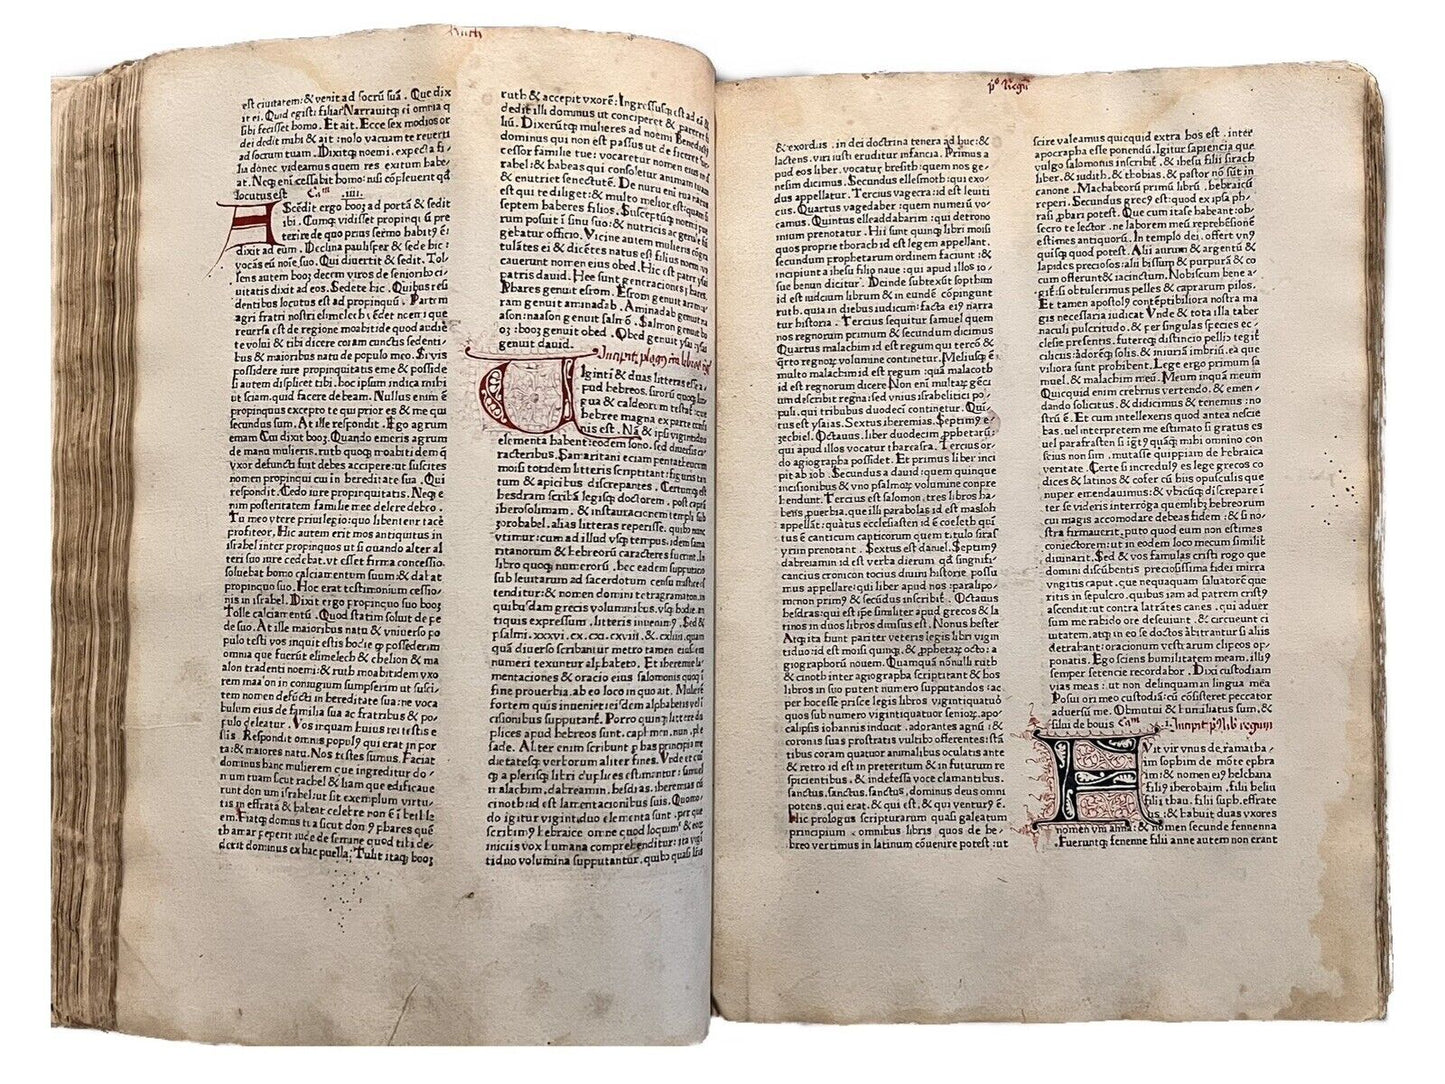 Ruth
est ciuitatem: & venit ad socrū suā. Que dix
it ei. Quid egisti: filia: Narrauitq; ei omnia q̄
sibi fecisset homo. Et ait. Ecce sex modios or
dei dedit mihi & ait: nolo vacuam te reuerti
ad socrum tuam. Dixitq; noemi. expecta fi,
lia donec videamus quem res exitum habe,
at. Neq; enī cessabit homo: nisi cōpleuerit qd̄
locutus est Cam̄ iiii.
AScēdit ergo booz ad portā & sedit
ibi. Cumq; vidisset propinquū pre
terire de quo prius sermo habitꝰ ē:
dixit ad eum. Declina paulisper & sede hic:
vocās eū noīe suo. Qui diuertit & sedit. Tol,
lens autem booz decem viros de senioribꝰ ci,
uitatis dixit ad eos. Sedete hic. Quibus resi
dentibus locutus est ad propinquū. Partem
agri fratri nostri elimelech vēdet noemi: que
reuersa est de regione moabitide quod audi
te volui & tibi dicere coram cunctis sedenti,
bus & maioribus natu de populo meo. Si vis
possidere iure propinquitatis eme & posside
si autem displicet tibi. hoc ipsum indica mihi
ut sciam. quid facere debeam. Nullus enim ē
propinquus excepto te qui prior es & me qui
secundus sum. At ille respondit. Ego agrum
emam Cui dixit booz. Quando emeris agrum
de manu mulieris. ruth quoq; moabitidem q̄
vxor defuncti fuit debes accipere: ut suscites
nomen propinqui tui in hereditate sua. Qui
respondit. Cedo iure propinquitatis. Neq; e
nim posteritatem familie mee delere debeo.
Tu meo vtere priuilegio: quo libenter me carē
profiteor. Hic autem erit mos antiquitus in
israhel inter propinquos ut si quando alter al
teri suo iure cedebat. vt esset firma concessio.
soluebat homo calciamentum suum: & dabat
propinquo suo. Hoc erat testimonium cessio,
nis in israhel. Dixit ergo propinquo suo booz
Tolle calciamentū. Quod statim soluit de pe
de suo. At ille maioribus natu & vniuerso po
pulo testi vos inquit estis hodie q̄ possederim
omnia que fuerūt elimelech & chelion & ma
alon tradenti noemi: & ruth moabitidem vxo
rem maalon in coniugium sumpserim ut susci,
tem nomen defūcti in hereditate sua: ne voca
bulum eius de familia sua ac fratribus & po,
pulo deleatur. Vos inquam huius rei testes e
stis. Respondit omnis populꝰ qui erat in por
ta: & maiores natu. Nos testes sumus. Faciat
dominus hanc mulierem que ingreditur do,
m̄ tuam sicut rachel & liam que edificaue
runt domum israhel: ut sit exemplum virtu,
tis in effrata & habeat celebre nomē ī bethlee
em. Fiatq; domus tua sicut domꝰ phares quē
thamar peperit iude de semine quod tibi de,
derit dominus ex hac puella. Tulit itaq; booz
ruth & accepit vxorē: Ingressusq; est ad eā &
dedit illi dominus ut conciperet & pareret fi
liū. Dixerūtq; mulieres ad noemi Benedictꝰ
dominus qui non est passus ut deficeret suc
cessor familie tue: vocaretur nomen eius in is
rahel: & habeas qui consoletur animam tuam
& enutriet senectutē. De nuru enī tua natus
est qui te diliget: & multo melior est: quam si
septem haberes filios. Susceptūq; noemi pue
rum posuit ī sinu suo: & nutricis ac gerule fū
gebatur officio. Vicine autem mulieres cōgra
tulātes ei & dicētes natus est filius noemi, vo
cauerunt nomen eius obed. Hic est pater ysai
patris dauid. Hee sunt generaciones phares.
Phares genuit esrom. Esrom genuit aram: a,
ram genuit aminadab. Aminadab genuit na
ason: naason genuit salmō. Salmon genuit bo
oz: booz genuit obed. Obed genuit ysai: ysai
genuit dauid.
Incipit plogꝰ in libros regū
UIginti & duas litteras esse a,
pud hebreos. sirorū quoq; lin
gua & caldeorum testatur: que
hebree magna ex parte confi
nis est. Nā & ipsi vigintiduo
elementa habent: eodem sono. sed diuersis ca
racteribus. Samaritani eciam pentatheucum
moisi totidem litteris scriptitant: figuris tan
tum & apicibus discrepantes. Certumq; est
hesdram scribā legisq; doctorem. post captā
iherosolimam. & instauracionem templi sub
zorobabel. alias litteras reperisse. quibꝰ nunc
vtimur: cum ad illud vsq; tempus. idem sama
ritanorum & hebreorū caracteres fuerint. In
libro quoq; numerorū. hec eadem supputacio
sub leuitarum ad sacerdotum censu mistice os
tenditur: & nomen domini tetragramaton. in
quibusdam grecis voluminibus. vsq; hodie. an
tiquis expressum. litteris inuenimꝰ. Sed &
psalmi. xxxvi. cx. cxi. cxviii. & cxliiii. quam
quā diuerso scribantur metro tamen eiusdem
numeri texuntur alphabeto. Et iheremie la,
mentaciones & oracio eius salomonis quoq; ī
fine prouerbia. ab eo loco in quo ait. Mulierē
fortem quis inueniet: eisdem alphabetis vel ī
cisionibus supputant̄. Porro quinq; littere du
plices apud hebreos sunt. caph. mem. nun. phe.
sade. Alter enim scribunt p has principia me
dietatesq; verborum aliter fines. Vnde et quin
q; a plerisq; libri duplices estimantur: samuel
malachim. dabreamin. hesdras. iheremias cū
cinoth: id est lamentacionibus suis. Quomo,
do igitur vigintiduo elementa sunt. per que
scribimꝰ hebraice omne quod loquimꝰ & eorū
iniciis vox humana comprehenditur: ita vigin
tiduo volumina supputantur. quibꝰ quasi litteris
pꝰ Regū
& exordiis. in dei doctrina tenera ad huc: &
lactens. viri iusti eruditur infancia. Primus a
pud eos liber. vocatur bresith: quem nos ge,
nesim dicimus. Secundus ellesmoth: qui exo
dus appellatur. Tercius vagecra: id est leuiti
cus. Quartus vagedaber: quem numeros vo
camus. Quintus elleaddabarim: qui deutrono
mium prenotatur. Hii sunt quinq; libri moisi
quos proprie thorach id est legem appellant.
secundum prophetarum ordinem faciunt: &
incipiunt a ihesu filio naue: qui apud illos io,
sue benun dicitur. Deinde subtexūt sopthim
id est iudicum librum & in eundē cōpingunt
ruth. quia in diebus iudicum: facta eiꝰ narra
tur historia. Tercius sequitur samuel quem
nos regnorum primum & secundum dicimus
Quartus malachim id est regum qui tercio &
q̄rto regnoꝝ volumine continetur. Meliusq; ē
multo malachim id est regum: quā malacoth
id est regnorum dicere Non enī multaꝝ genci
um describit regna: sed vnius israhelitici po,
puli. qui tribubus duodecī continetur. Qui,
tus est ysaias. Sextus iheremias. Septimꝰ e,
zechiel. Octauus. liber duodecim pphetarū:
qui apud illos vocatur tharcasra. Tercius or,
do agiographa possidet. Et primus liber inci
pit ab iob. Secundus a dauid: quem quinque
incisionibus & vno psalmoꝝ volumine conpre
hendunt. Tercius est salamon. tres libros ha,
bens. puerbia. que illi parabolas id est masloh
appellāt: quartus ecclesiasten id ē coeleth quī
tus ē canticum canticorum quem titulo siras
syriin prenotant. Sextus est daniel. Septimꝰ
dabreiamin id est verba dierum qd significan
cancius cronicon tocius diuini historie possu
mus appellare. qui liber apud nos: paralipo,
menon primꝰ & secūdus inscribit̄. Octauus
hesdras: qui et ipse similiter apud grecos & la
tinos in duos libros diuisus est. Nonus hester
Atq; ita fiunt pariter veteris legis libri vigin
tiduo: id est moisi quinq; & pphetaꝝ octo: a,
giographorū nouem. Quamquā nōnulli ruth
& cinoth inter agiographa scriptitant & hos
libros in suo putent numero supputandos: ac
per hoc esse prisce legis libros vigintiquatuor
quos sub numero vigintiquatuor senioꝝ. apo,
calipsis iohannis inducit. adorantes agnū: &
coronas suas prostratis vultibꝰ offerentes: stā
tibus coram quatuor animalibus oculatis ante
& retro id est in preteritum & in futurum re
spicientibus. & indefessa voce clamantibus.
sanctus. sanctus. sanctus. dominus deus omni
potens. qui erat. & qui est. & qui venturꝰ ē.
Hic prologus scripturarum quasi galeatum
principium. omnibus libris quos de he,
breo vertimus in latinum cōuenire potest: ut
scire valeamus quicquid extra hos est. inter
apocrapha esse ponendum. Igitur sapiencia que
vulgo salomonis inscribit̄. & ihesu filii sirach
liber. & iudith. & thobias. & pastor nō sūt in
canone. Machabeorū primū librū. hebraicū
reperi. Secundus grecꝰ est: quod ex ipsa ph,
rasi pbari potest. Que cum ita se habeant: ob,
secro te lector. ne laborem meū reprehēsionē
estimes antiquorū. In templo dei. offert vnꝰ
quisq; quod potest. Alii aurum & argentū &
lapides preciosos: alii bissum & purpurā & co
cum offerunt & iacinctum. Nobiscum bene a,
gitur si obtulerimus pelles & caprarum pilos.
Et tamen apostolꝰ contēptibiliora nostra ma
gis necessaria iudicat Vnde & tota illa taber
naculi pulcritudo. & per singulas species ecc,
lesie. presentis futureq; distinctio pellibꝰ tegit̄
ciliciis: ardorēq; solis. & iniuriā imbriū. ea que
viliora sunt prohibent. Lege ergo primum sa
muel. & malachim meū. Meum inquā meum
Quicquid enim crebrius vertendo. & emen,
dando solicitus. & didicimus & tenemus: no
strum est. Et cum intellexeris quod antea nescie
bas. vel interpretem me estimato si gratus es
vel parafrasten si īgtꝰ. quāq; mihi omnino con
scius non sim. mutasse quippiam de hebraica
veritate. Certe si incredulꝰ es lege grecos co
dices & latinos & cofer cū hiis opusculis que
nuper emendauimus: & vbicūq; discrepare ī
ter se videris interroga quemlibꝫ hebreorum
cui magis accomodare debeas fidem: & si no
stra firmauerit. puto quod eum non estimes
coniectorem: ut in eodem loco mecum similit
diuinarit. Sed & vos famulas cristi rogo que
domini discūbentis preciosissima fidei mirra
vngitis caput. que nequaquam saluatorē que
ritis in sepulcro. quibus iam ad patrem cristꝰ
ascendit: ut contra latrātes canes. qui aduer
sum me rabido ore deseuiunt. & circueunt ci
uitatem. atq; in eo se doctos arbitrantur si aliis
detrahant: oracionum vestrarum clipeos op,
ponatis. Ego sciens humilitatem meam. illiꝰ
semper setencie recordabor. Dixi custodiam
vias meas: ut non delinquam in lingua mea
Posui ori meo custodiā: cū cōsisteret peccator
aduersū me. Obmutui & humiliatus sum. &
silui de bonis Cam̄ .i. Incipit pꝰ lib regum
FVit vir vnus de ramatha,
im sophim de mōte ephra
im: & nomen eiꝰ helchana
filiꝰ iherobaim. filii heliu
filii thau. filii suph. effrate
us: & habuit duas vxores
nomen vni anna: & nomen secunde fennenna
Fueruntq; fenenne filii anne autem non erant